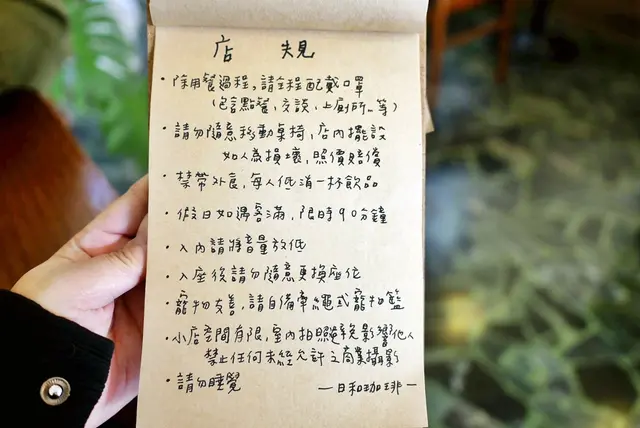 店規
・除用餐過程，請全程配戴口罩
(包含點餐，交談，上廁所…等)
・請勿隨意移動桌椅，店內擺設
如人為損壞，照價賠償
・禁帶外食，每人低消一杯飲品
・假日如遇客滿，限時90分鐘
・入內請將音量放低
・入座後請勿隨意更換座位
・寵物友善，請自備牽繩或寵物籃
・小店空間有限，室內拍照避免影響他人
禁止任何未經允許之商業攝影
・請勿睡覺
—日和咖啡—